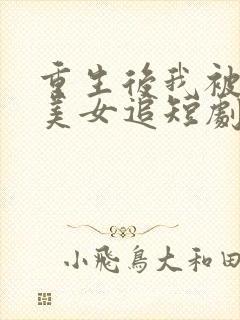 重生後我被
美女追短劇
小飛鳥大和田